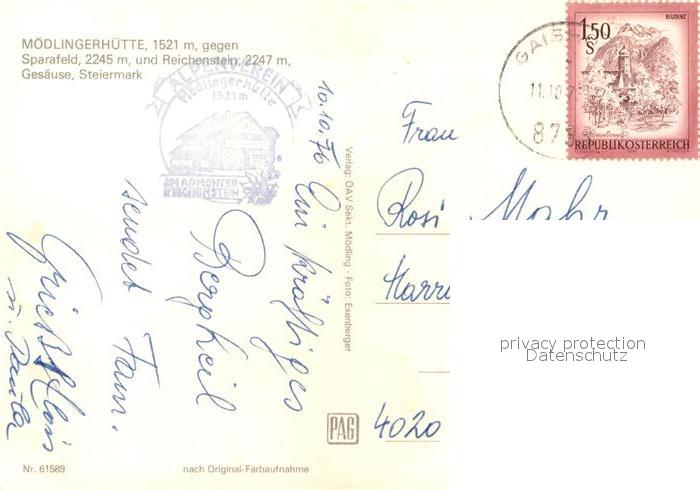 MÖDLINGERHÜTTE, 1521 m, gegen
Sparafeld, 2245 m, und Reichenstein, 2247 m,
Gesäuse, Steiermark
ALPENVEREIN
Mödlingerhütte
1521 m
AM ADMONTER
REICHENSTEIN
10.10.76
Ein kräftiges
Bergheil
sendet Fam.
Grießl Alois
u. Paula
Verlag: ÖAV Sekt. Mödling - Foto: Exenberger
PAG
Nr. 61589
nach Original-Farbaufnahme
GAIS
11.10.7
873
BLUDENZ
1.50
S
REPUBLIK ÖSTERREICH
Frau
Rosi Mohr
4020
privacy protection
Datenschutz